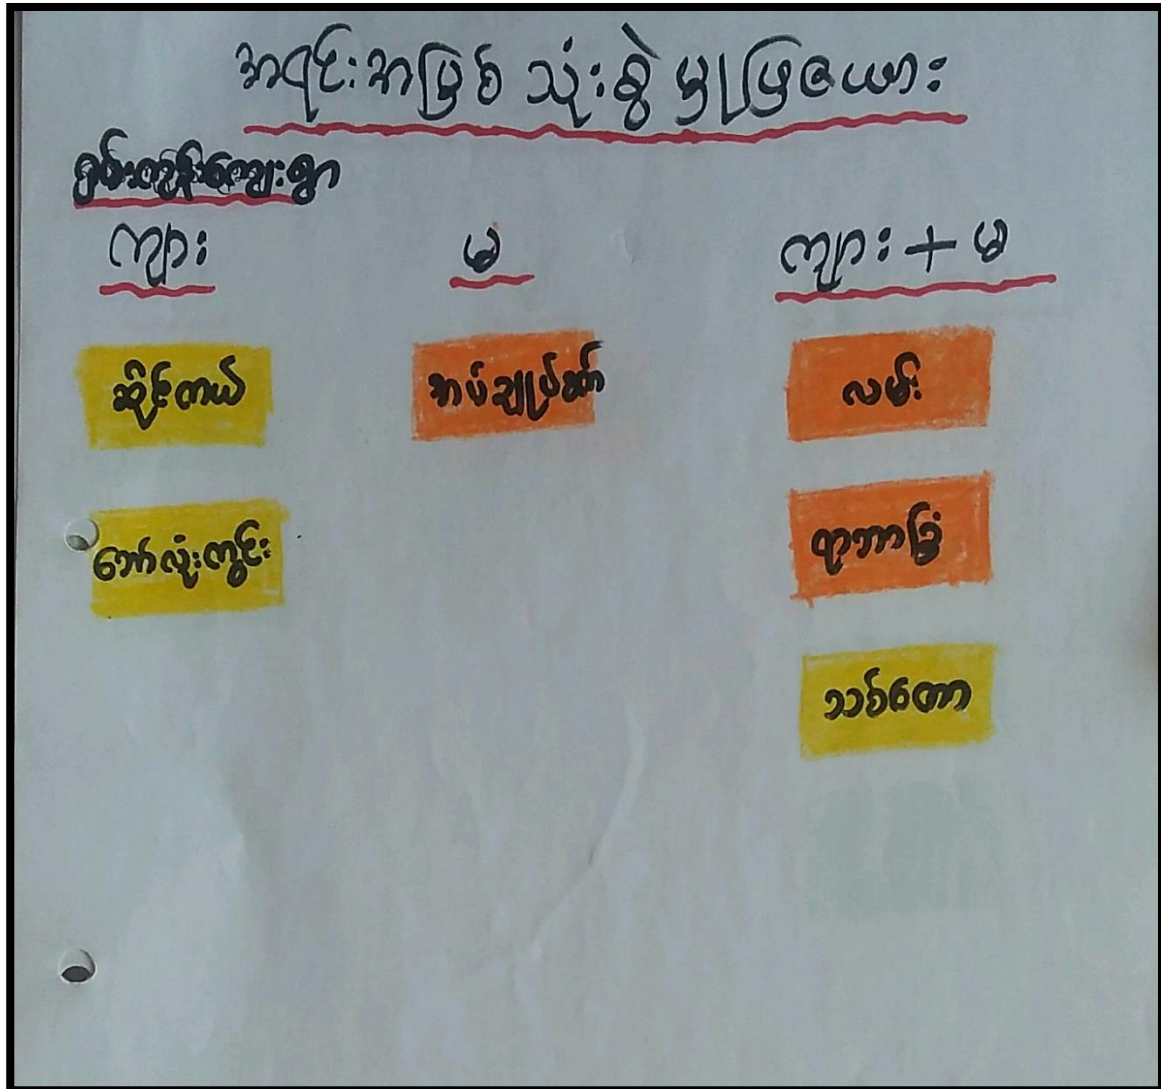 အရင်းအမြစ် သုံးစွဲ မှုပြဇယား
ရှမ်းကုန်းကျေးရွာ
ကျား မ ကျား + မ
ဆိုင်ကယ် အပ်ချုပ်စက် လမ်း
ဘော်လုံးကွင်း ရာဘာခြံ
သစ်တော